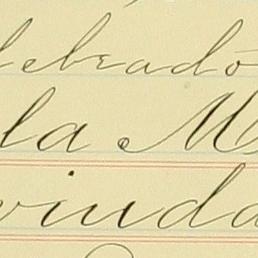 lebrado
la M
vinda